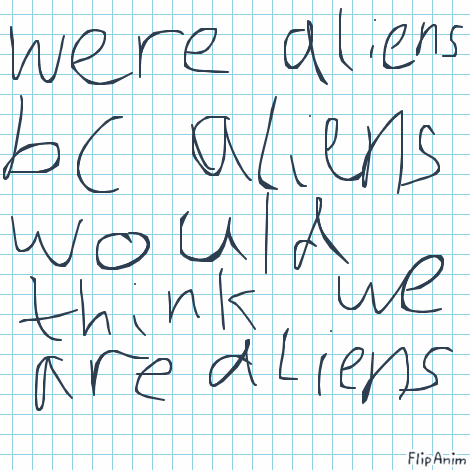 were aliens
bc aliens
would
think we
are aliens
FlipAnim